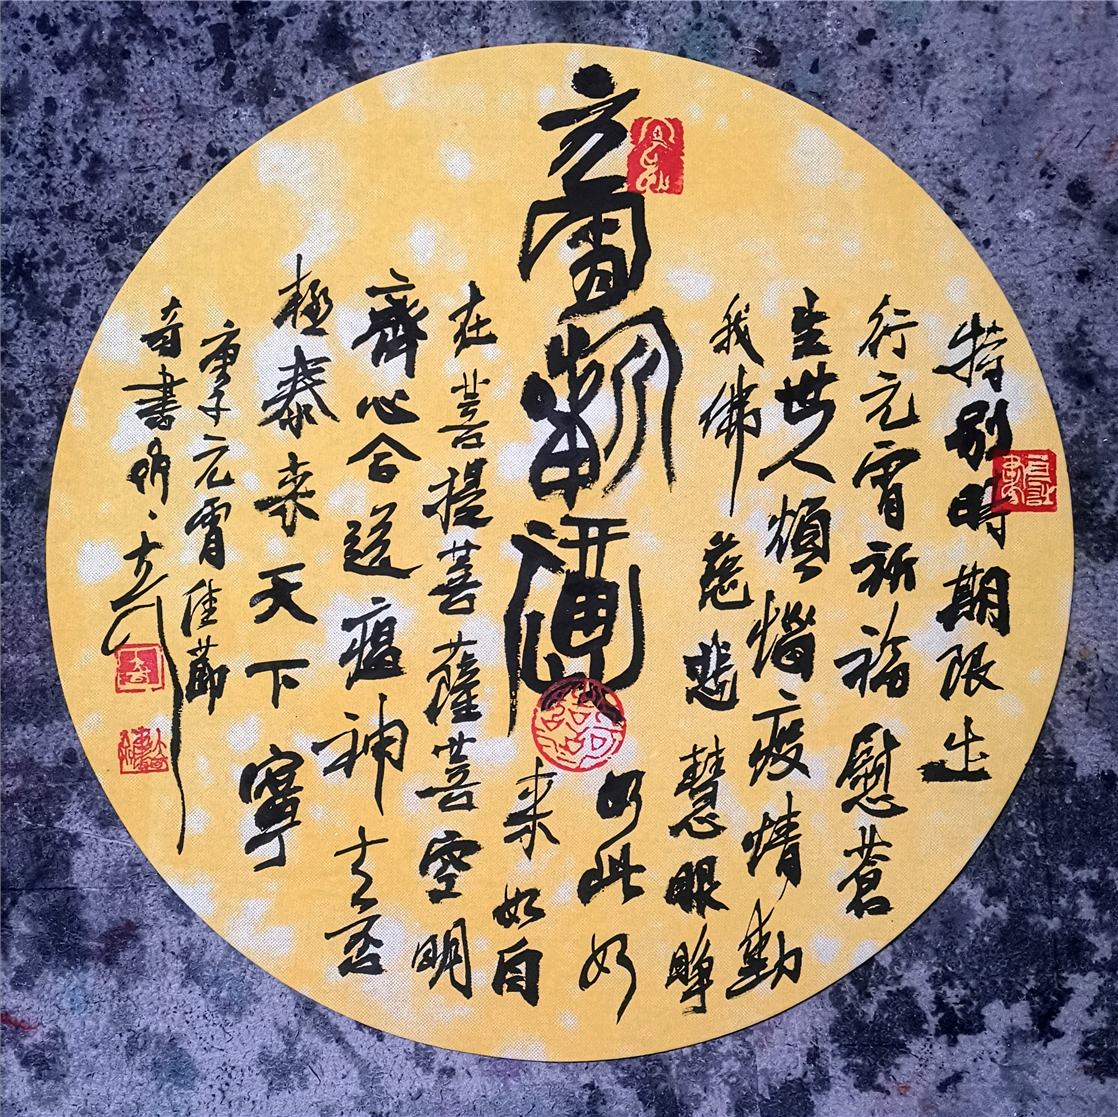 特別時期限出
行元宵祈福慰蒼
生世人煩惱疫情勤
我佛慈悲慧眼睜
如此如
来如自
在菩提菩薩菩空明
齊心合送瘟神去否
極泰来天下寧
庚子元宵佳節
奇書